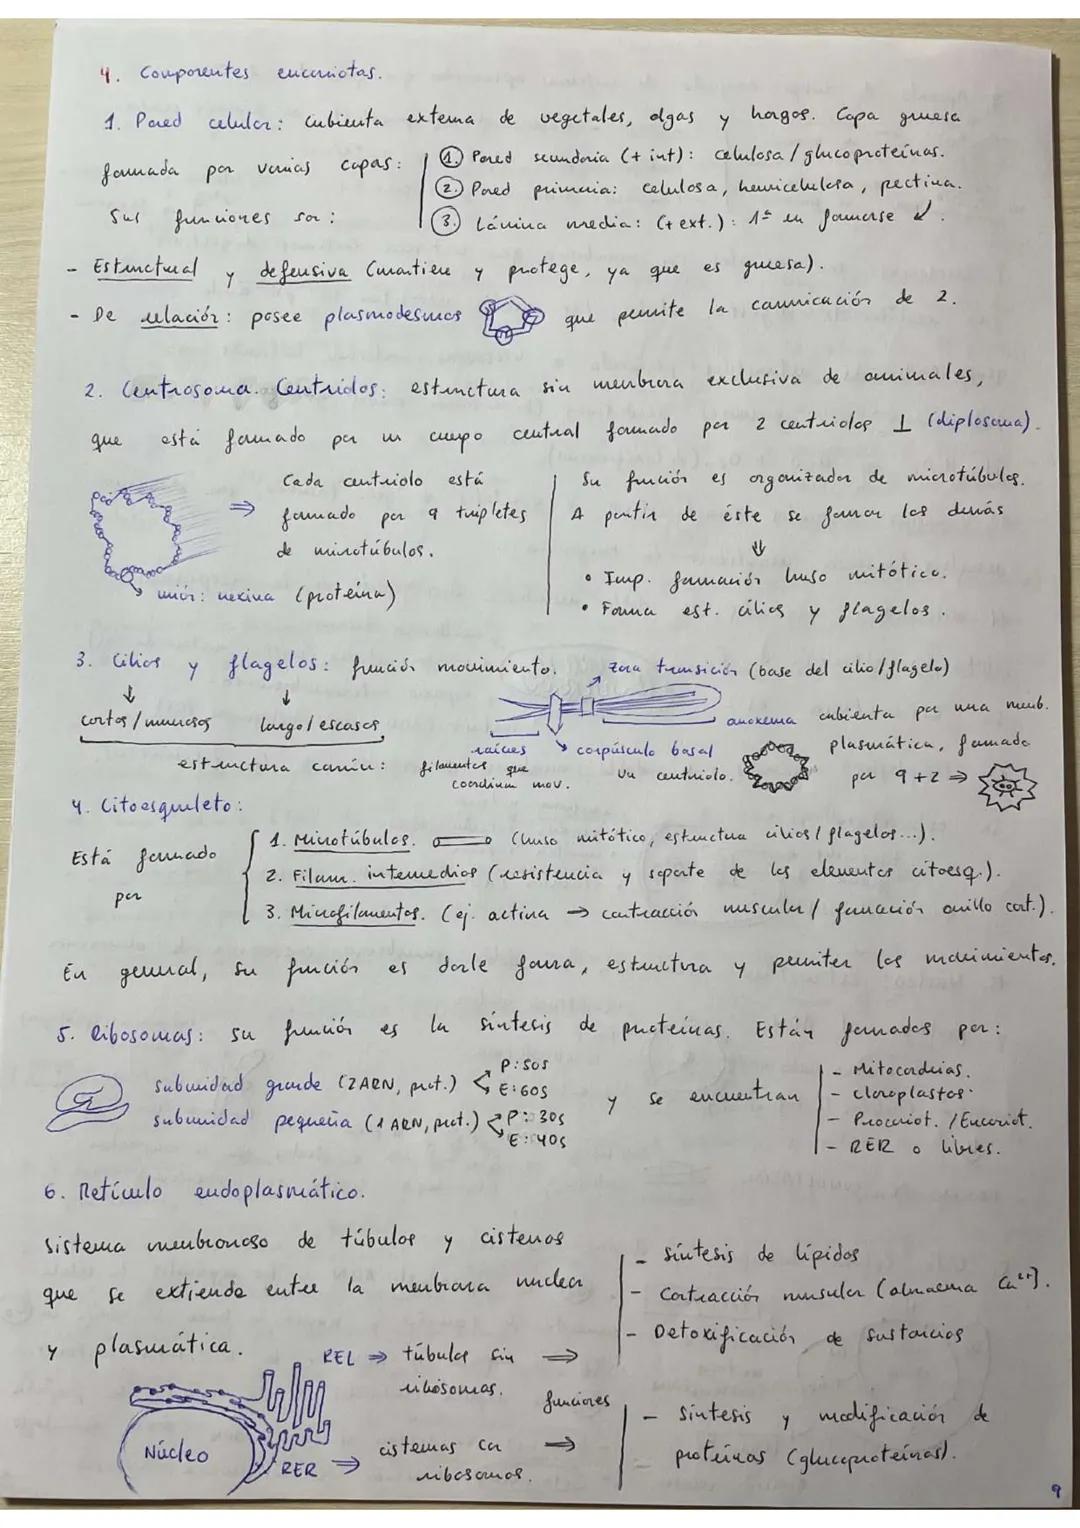 4. Componentes eucariotas.
1. Pared celular: cubierta externa de vegetales, algas y hongos. Capa gruesa
formada por varias capas:
1. Pared secundaria (+ int): celulosa / glucoproteínas.
2. Pared primaria: celulosa, hemicelulosa, pectina.
3. Lámina media: (+ ext.): 1ª en formarse
Sus funciones son:
- Estructural y defensiva (mantiene y protege, ya que es gruesa).
- De relación: posee plasmodesmos que permite la comunicación de 2.
2. Centrosoma. Centriolos: estructura sin membrana exclusiva de animales,
que está formado por un cuerpo central formado por 2 centriolos ⊥ (diplosoma).
⇒ Cada centriolo está
formado por 9 tripletes
de microtúbulos.
unión: nexina (proteína)
Su función es organizador de microtúbulos.
A partir de éste se forman los demás
⇓
• Imp. formación huso mitótico.
• Forma est. cilios y flagelos.
3. Cilios y flagelos: función movimiento.
cortos / numerosos largo / escasos
estructura común:
zona transición (base del cilio/flagelo)
raíces
filamentos que
coordinan mov.
corpúsculo basal
Un centriolo.
axonema cubierta por una memb.
plasmática, formado
por 9+2 ⇒
4. Citoesqueleto:
Está formado
por
1. Microtúbulos. (huso mitótico, estructura cilios / flagelos...).
2. Filam. intermedios (resistencia y soporte de los elementos citoesq.).
3. Microfilamentos. (ej. actina → contracción muscular / formación anillo cont.).
En general, su función es darle forma, estructura y permiten los movimientos.
5. Ribosomas: su función es la síntesis de proteínas. Están formados por:
subunidad grande (2ARN, prot.) P: 50S
E: 60S
subunidad pequeña (1 ARN, prot.) P: 30S
E: 40S
y se encuentran
- Mitocondrias.
- Cloroplastos.
- Procariot. / Eucariot.
- RER o libres.
6. Retículo endoplasmático.
Sistema membranoso de túbulos y cisternas
que se extiende entre la membrana nuclear
y plasmática.
REL ⇒ túbulos sin ⇒
ribosomas.
- Síntesis de lípidos
- Contracción muscular (almacena Ca²⁺).
- Detoxificación de sustancias
funciones
Núcleo
RER ⇒ cisternas con ⇒
ribosomas.
- Síntesis y modificación de
proteínas (glucoproteínas).
9